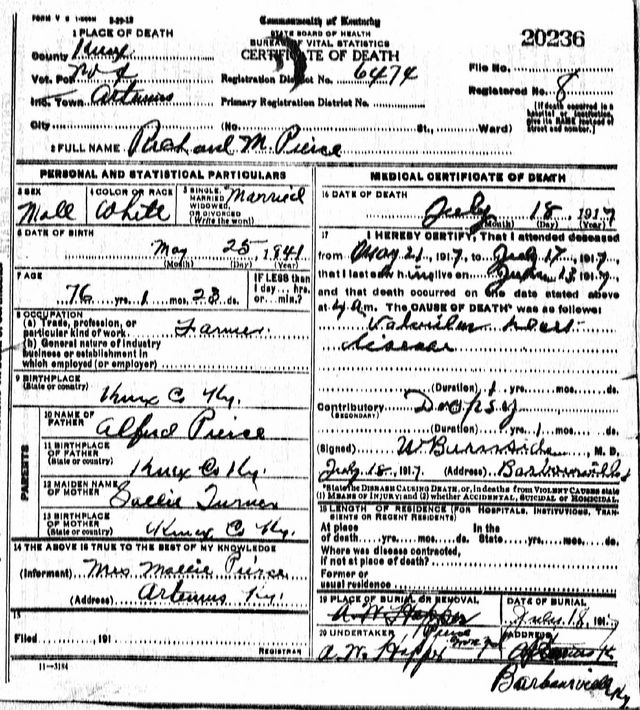 FORM V S 1-500M 3-29-12
Commonwealth of Kentucky
STATE BOARD OF HEALTH
BUREAU OF VITAL STATISTICS
CERTIFICATE OF DEATH
20236
1 PLACE OF DEATH
County Knox
Vot. Pct. No 1
Inc. Town Artemus
City
Registration District No. 6474
Primary Registration District No.
(No. St., Ward)
File No.
Registered No. 8
[If death occurred in a hospital or institution, give its NAME instead of street and number.]
2 FULL NAME Richard M. Pierce
PERSONAL AND STATISTICAL PARTICULARS
3 SEX
Mall
4 COLOR OR RACE
White
5 SINGLE, MARRIED, WIDOWED, OR DIVORCED (Write the word)
Married
6 DATE OF BIRTH
May 25, 1841
(Month) (Day) (Year)
7 AGE
76 yrs. 1 mos. 23 ds.
IF LESS than 1 day...hrs. or...min.?
8 OCCUPATION
(a) Trade, profession, or particular kind of work Farmer
(b) General nature of industry business or establishment in which employed (or employer)
9 BIRTHPLACE (State or country)
Knox Co Ky.
PARENTS
10 NAME OF FATHER
Alfred Pierce
11 BIRTHPLACE OF FATHER (State or country)
Knox Co Ky.
12 MAIDEN NAME OF MOTHER
Sallie Turner
13 BIRTHPLACE OF MOTHER (State or country)
Knox Co Ky.
14 THE ABOVE IS TRUE TO THE BEST OF MY KNOWLEDGE
(Informant) Mrs Mollie Pierce
(Address) Artemus Ky.
15
Filed , 191
REGISTRAR
11-3184
MEDICAL CERTIFICATE OF DEATH
16 DATE OF DEATH
July 18, 1917
(Month) (Day) (Year)
17 I HEREBY CERTIFY, That I attended deceased
from May 21, 1917, to July 17, 1917,
that I last saw him alive on 13, 1917,
and that death occurred on the date stated above
at m. The CAUSE OF DEATH* was as follows:
Valvular heart
disease
(Duration) 1 yrs. mos. ds.
Contributory Dropsy
(SECONDARY)
(Duration) yrs. 1 mos. ds.
(Signed) W Burnside, M. D.
July 18, 1917. (Address) Barbourville
*State the DISEASE CAUSING DEATH, or, in deaths from VIOLENT CAUSES state (1) MEANS OF INJURY; and (2) whether ACCIDENTAL, SUICIDAL or HOMICIDAL.
18 LENGTH OF RESIDENCE (FOR HOSPITALS, INSTITUTIONS, TRANSIENTS OR RECENT RESIDENTS)
At place of death yrs. mos. ds. In the State yrs. mos. ds.
Where was disease contracted, if not at place of death?
Former or usual residence
19 PLACE OF BURIAL OR REMOVAL
A. W. Hopper
Pierce
DATE OF BURIAL
18, 191
20 UNDERTAKER
A. W. Hopper
ADDRESS
Barbourville Ky